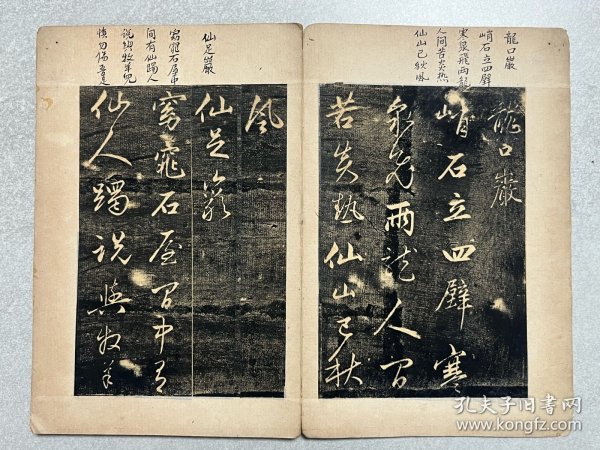 龍口巖
峭石立四壁
寒泉飛兩龍
人間苦炎熱
仙山已秋風
龍口巖
峭石立四壁寒
泉飛兩龍人間
苦炎熱仙山已秋
仙足巖
窈窕石屋中
間有仙躅人
說與牧羊兒
慎勿傷吾足
風
仙足巖
窈窕石屋間中有
仙人躅說與牧羊
孔夫子旧书网
www.kongfz.com